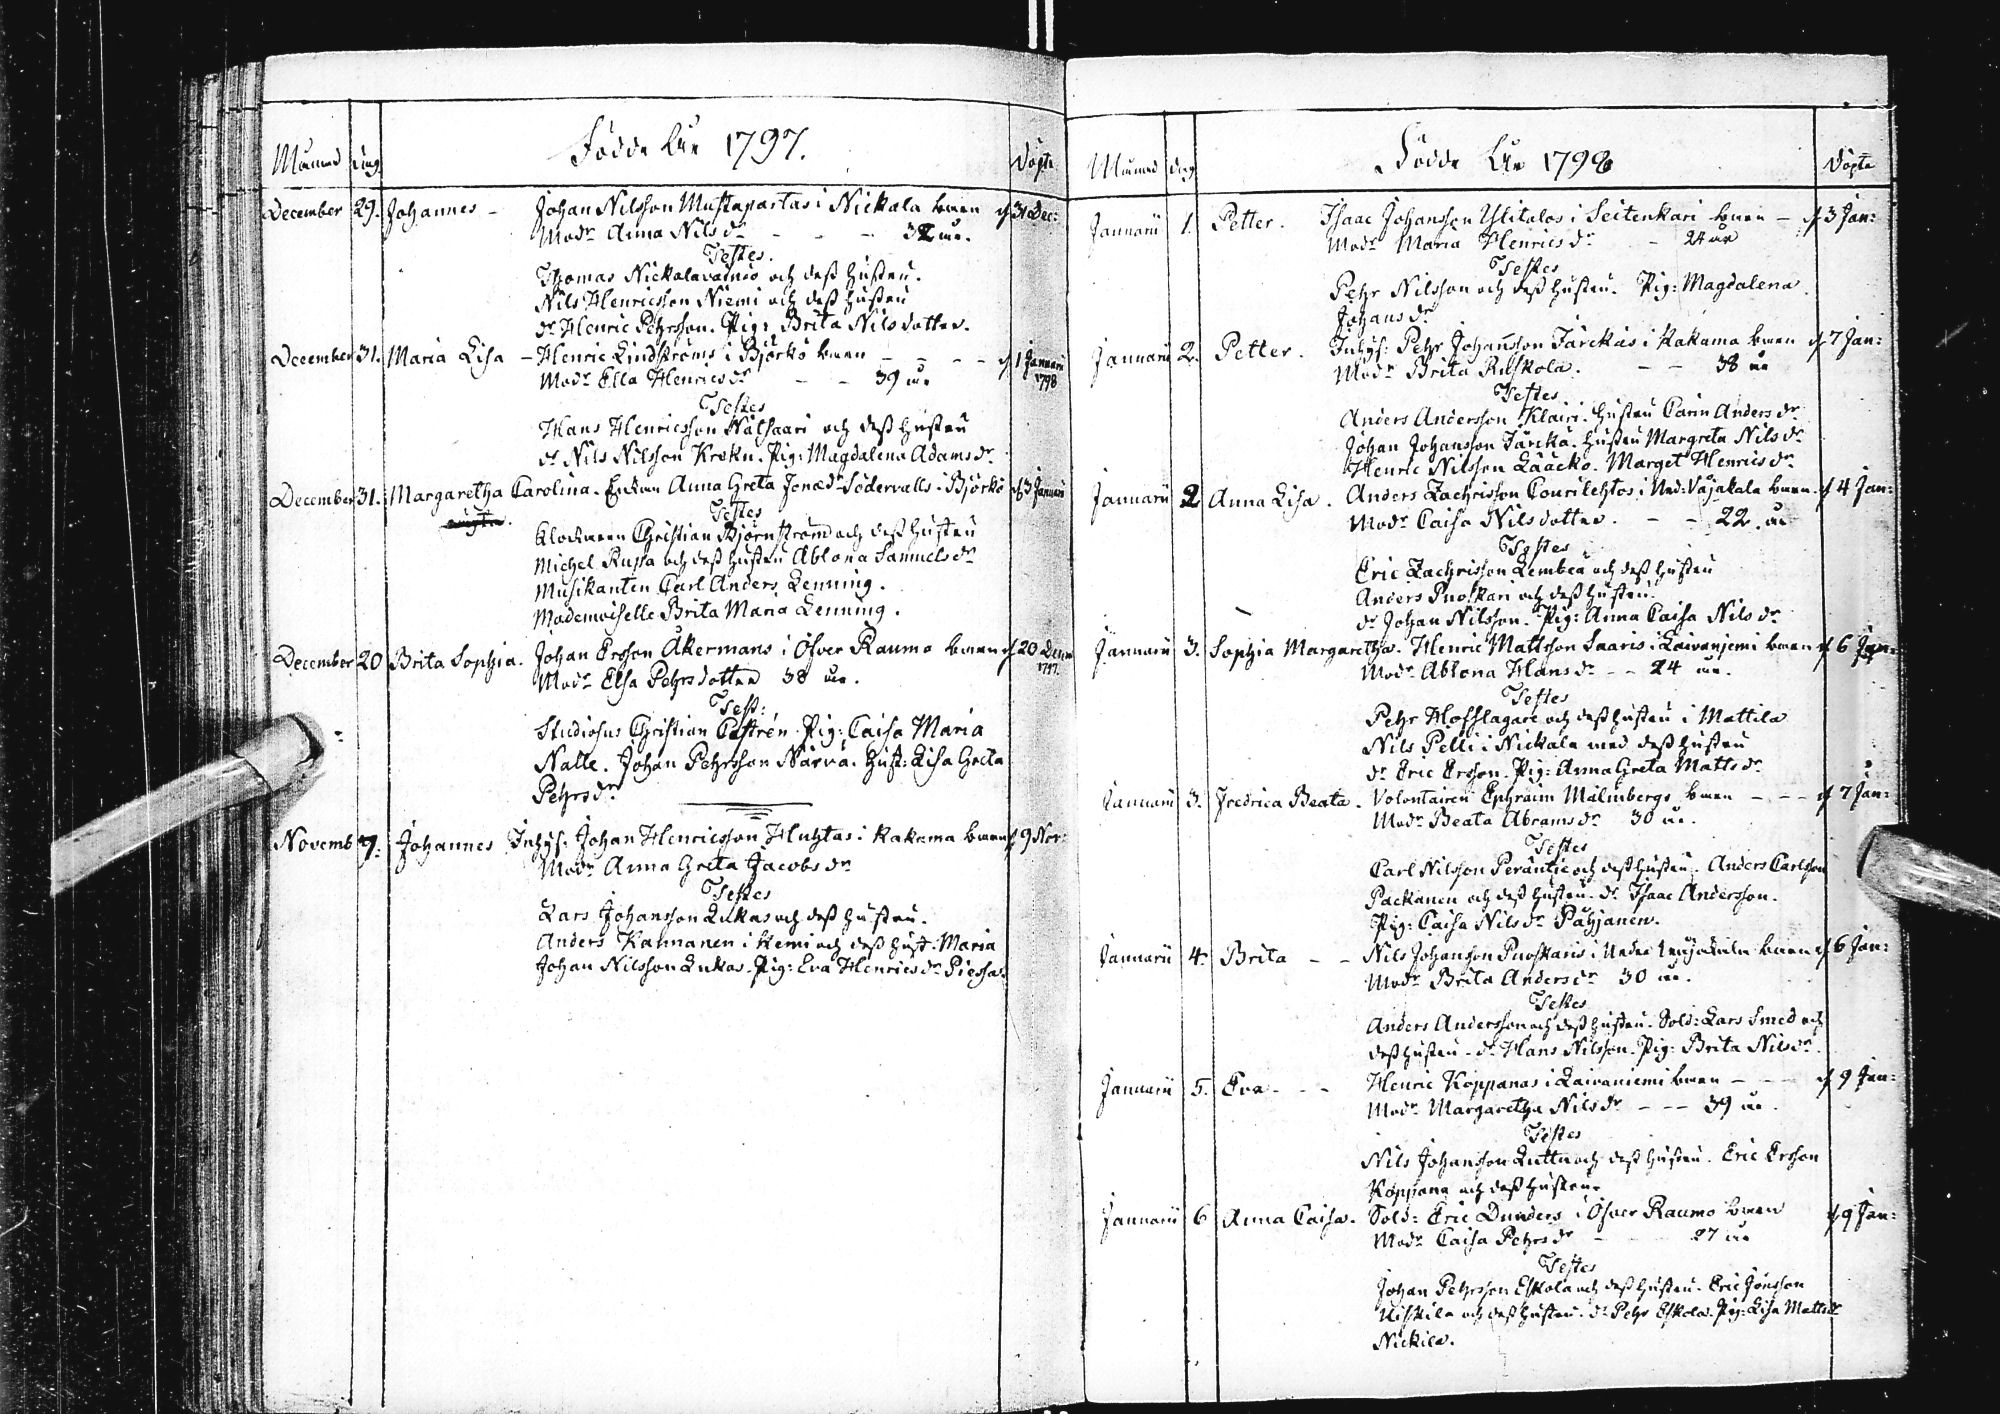 Födde År 1797.
Månad dag Döpte
December 29. Johannes - Johan Nilsson Mustapartas i Nickala barn d 31 Dec:
Modr Anna Nils dr - - - 32 år.
Testes.
Thomas Nickalavainio och dess hustru.
Nils Henricsson Niemi och dess hustru
dr Henric Pehrsson. Pig: Brita Nils dotter.
December 31. Maria Lisa - Henric Lindströms i Björkö barn - - - - d 1 Januarii 1798
Modr Ella Henrics dr - - 39 år
Testes
Hans Henricsson Nälsaari och dess hustru
dr Nils Nilsson Krekn. Pig: Magdalena Adams dr
December 31. Margaretha Carolina. Enkan Anna Greta Jonædr Södervalls i Björkö d 3 Januarii
Testes
Klockaren Christian Björnström och dess hustru
Michel Russa och dess hustru Ablona Samuels dr
Musikanten Carl Anders Lenning.
Mademoiselle Brita Maria Lenning.
December 20 Brita Sophia. Johan Ersson Åkermans i Öfver Raumo barn d 20 Decem 1797.
Modr Elsa Pehrs dotter 38 år.
Test:
Studiosus Christian Castrén. Pig: Caisa Maria
Nalle. Johan Pehrsson Narva. Hust: Lisa Greta
Pehrs dr
Novemb 7. Johannes Inhys: Johan Henricsson Huhtas i Kakama barn d 9 Nov:
Modr Anna Greta Jacobs dr
Testes
Lars Johansson Lukas och dess hustru.
Anders Kannanen i Kemi och dess hust: Maria
Johan Nilsson Lukas. Pig: Eva Henrics dr Piessa.
Födde År 1798
Månad dag Döpte
Januarii 1. Petter. Isaac Johansson Ylitalos i Seitenkari barn - d 3 Jan:
Modr Maria Henrics dr - 24 år
Testes
Pehr Nilsson och dess hustru. Pig: Magdalena
Johans dr
Januarii 2. Petter. Inhys: Pehr Johansson Tarckas i Kakama barn d 7 Jan:
Modr Brita Ruskola. - - 38 år
Testes
Anders Andersson Klairi. hustru Carin Anders dr
Johan Johansson Tarcka. hustru Margreta Nils dr
Henric Nilsson Lääcko. Marget Henrics dr
Januarii 2 Anna Lisa. Anders Zachrisson Courilehtos i Ned: Vojakala barn. d 4 Jan:
Modr Caisa Nils dotter. - - 22. år
Testes
Eric Zachrisson Lembea och dess hustru
Anders Puoskari och dess hustru.
dr Johan Nilsson. Pig: Anna Caisa Nils dr
Januarii 3. Sophia Margaretha. Henric Mattsson Saaris i Laivanjemi barn d 6 Jan:
Modr Ablona Hans dr - - 24 år.
Testes
Pehr Hofslagare och dess hustru i Mattila
Nils Pelli i Nickala med dess hustru
dr Eric Ersson. Pig: Anna Greta Matts dr
Januarii 3. Fredrica Beata. Volontairen Ephraim Malmbergs barn - - - d 7 Jan:
Modr Beata Abrams dr 30 år.
Testes
Carl Nilsson Peräntie och dess hustru. Anders Carlsson
Packanen och dess hustru. dr Isaac Andersson.
Pig: Caisa Nils dr Pahjanen.
Januarii 4. Brita - - Nils Johansson Puoskaris i Neder barn d 6 Jan:
Modr Brita Anders dr 30 år.
Testes
Anders Andersson och dess hustru. Sold: Lars Smed och
dess hustru - dr Hans Nilsson. Pig: Brita Nils dr.
Januarii 5. Eva - - - Henric Koppanas i Laivaniemi barn - - - d 9 Jan:
Modr Margaretha Nils dr - - - 39 år.
Testes
Nils Johansson Luttu och dess hustru. Eric Ersson
Koppana och dess hustru.
Januarii 6 Anna Caisa. Sold: Eric Dunders i Öfver Raumo barn d 9 Jan:
Modr Caisa Pehrs dr - - 27 år
Testes
Johan Pehrsson Eskola och dess hustru. Eric Jönsson
Uiskila och dess hustru. dr Pehr Eskola. Pig: Lisa Matts dr
Nickila.